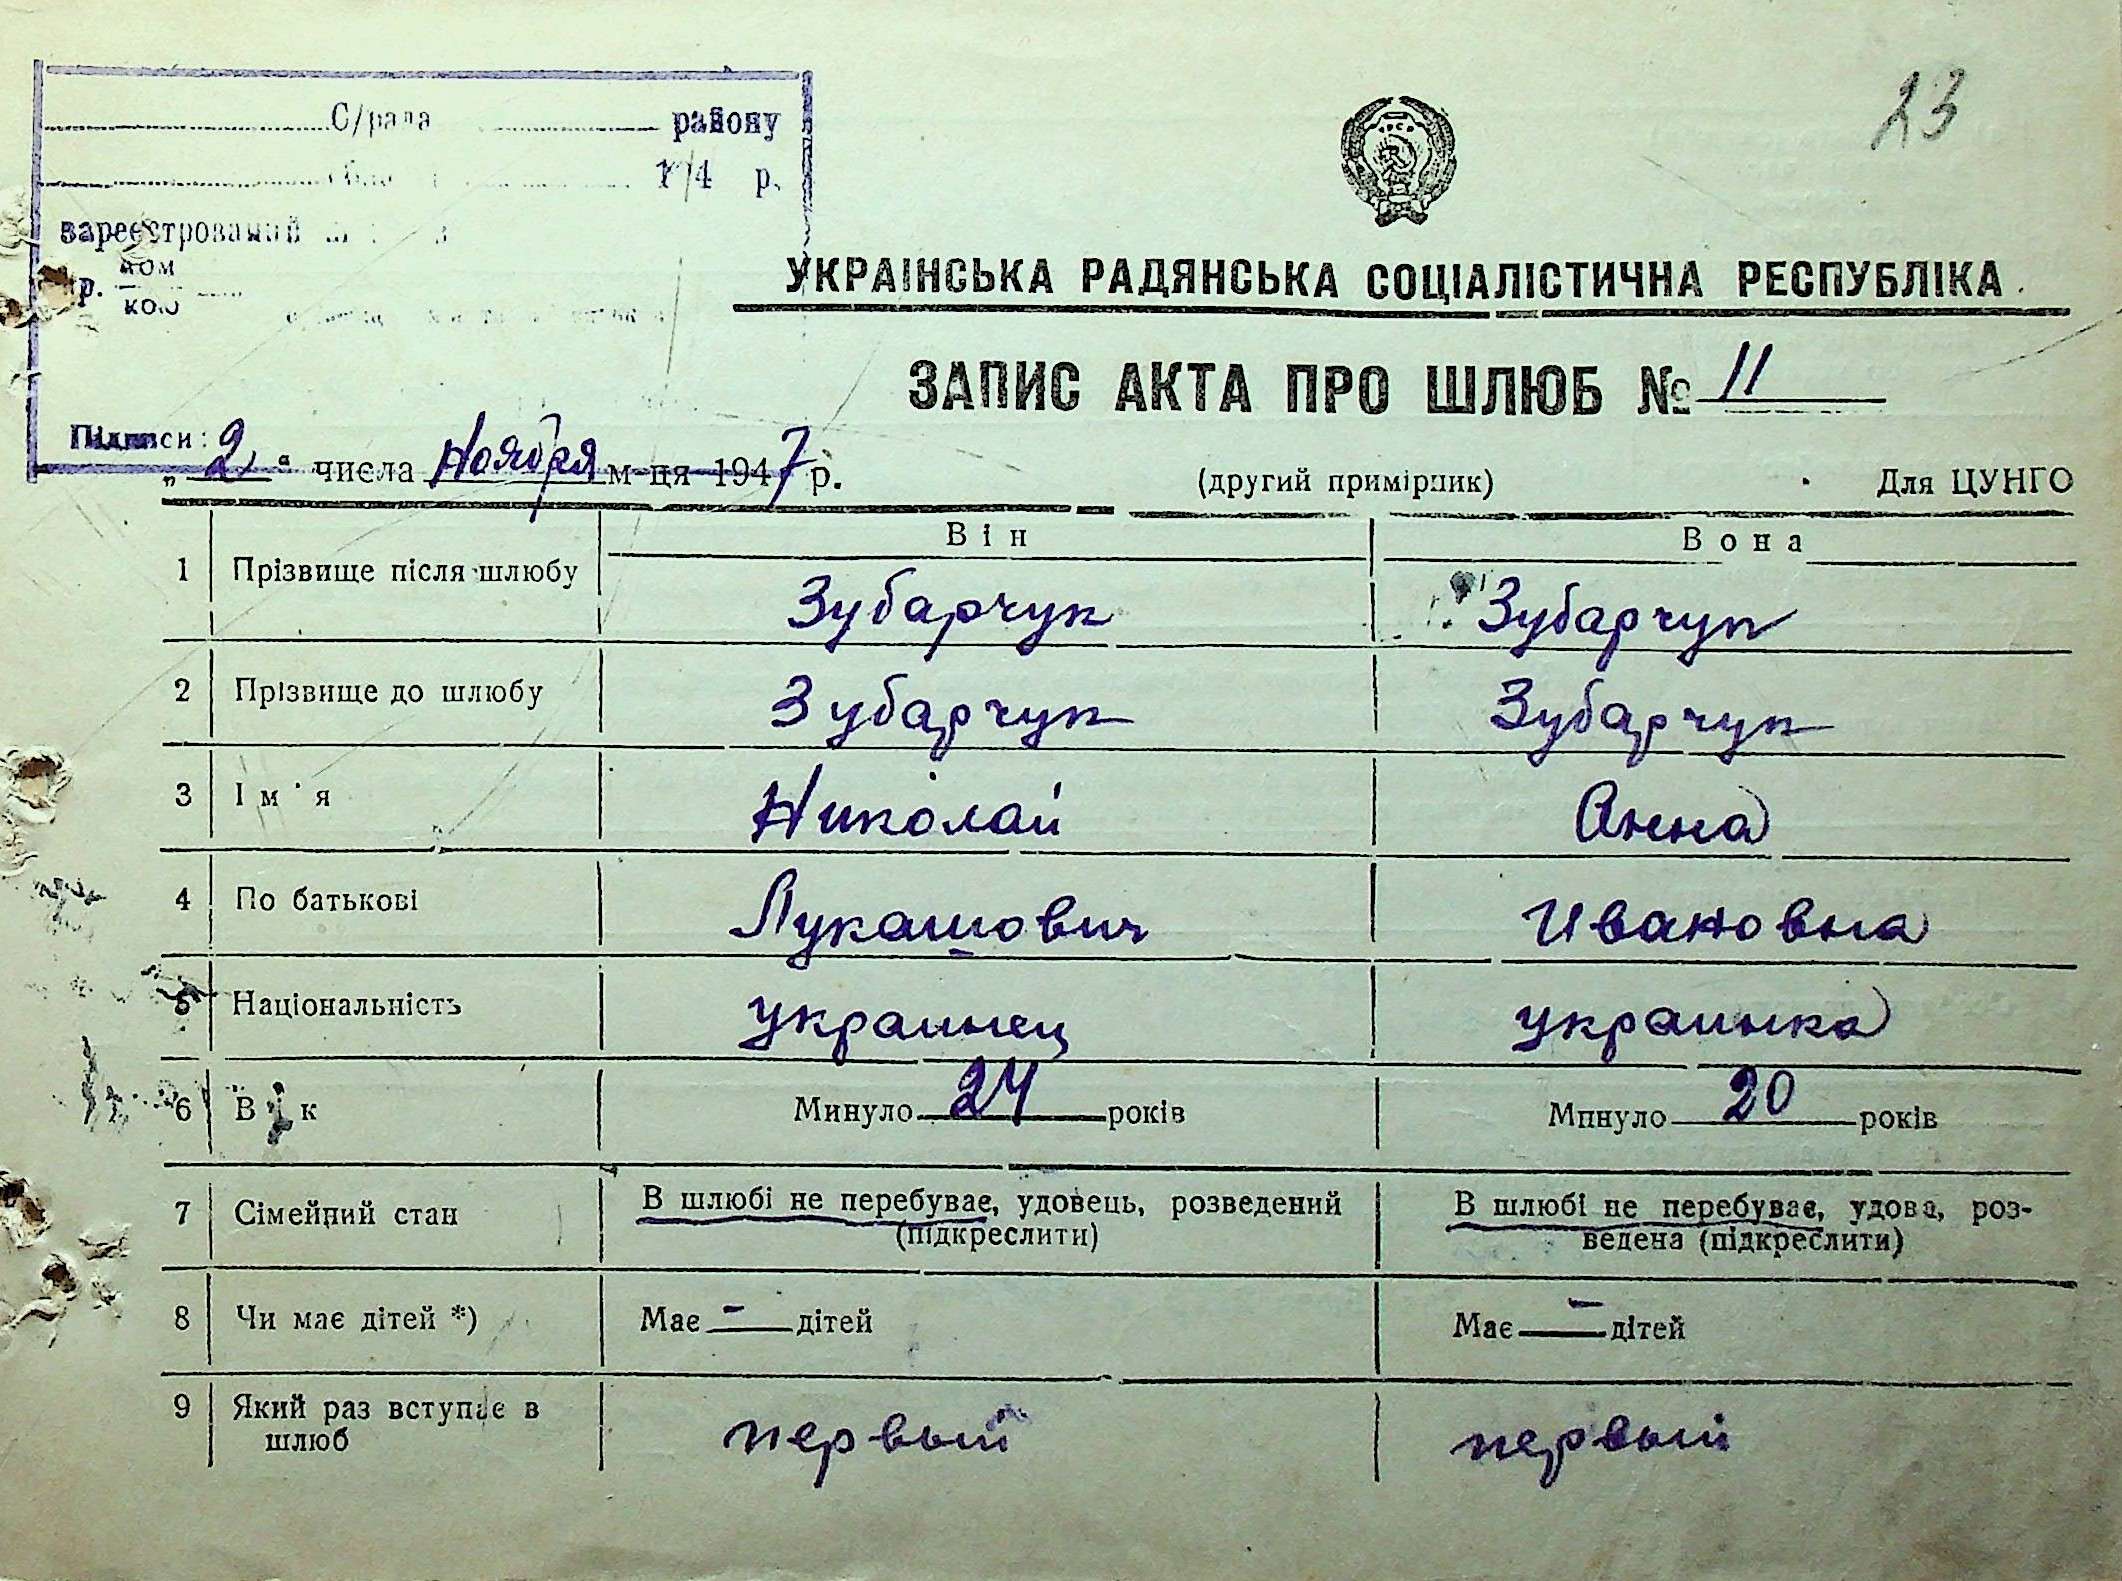 23
С/рада району
р.
зареєстрований
ком
р.
кою
Підписи:
УКРАЇНСЬКА РАДЯНСЬКА СОЦІАЛІСТИЧНА РЕСПУБЛІКА
ЗАПИС АКТА ПРО ШЛЮБ № 11
„2“ числа Ноября м-ця 1947 р. (другий примірник) Для ЦУНГО
Він Вона
1 Прізвище після шлюбу Зубарчук Зубарчук
2 Прізвище до шлюбу Зубарчук Зубарчук
3 Ім'я Николай Анна
4 По батькові Лукашович Ивановна
5 Національність украинец украинка
6 Вік Минуло 24 років Минуло 20 років
7 Сімейний стан В шлюбі не перебуває, удовець, розведений В шлюбі не перебуває, удова, роз-
(підкреслити) ведена (підкреслити)
8 Чи має дітей *) Має – дітей Має – дітей
9 Який раз вступає в первый первый
шлюб